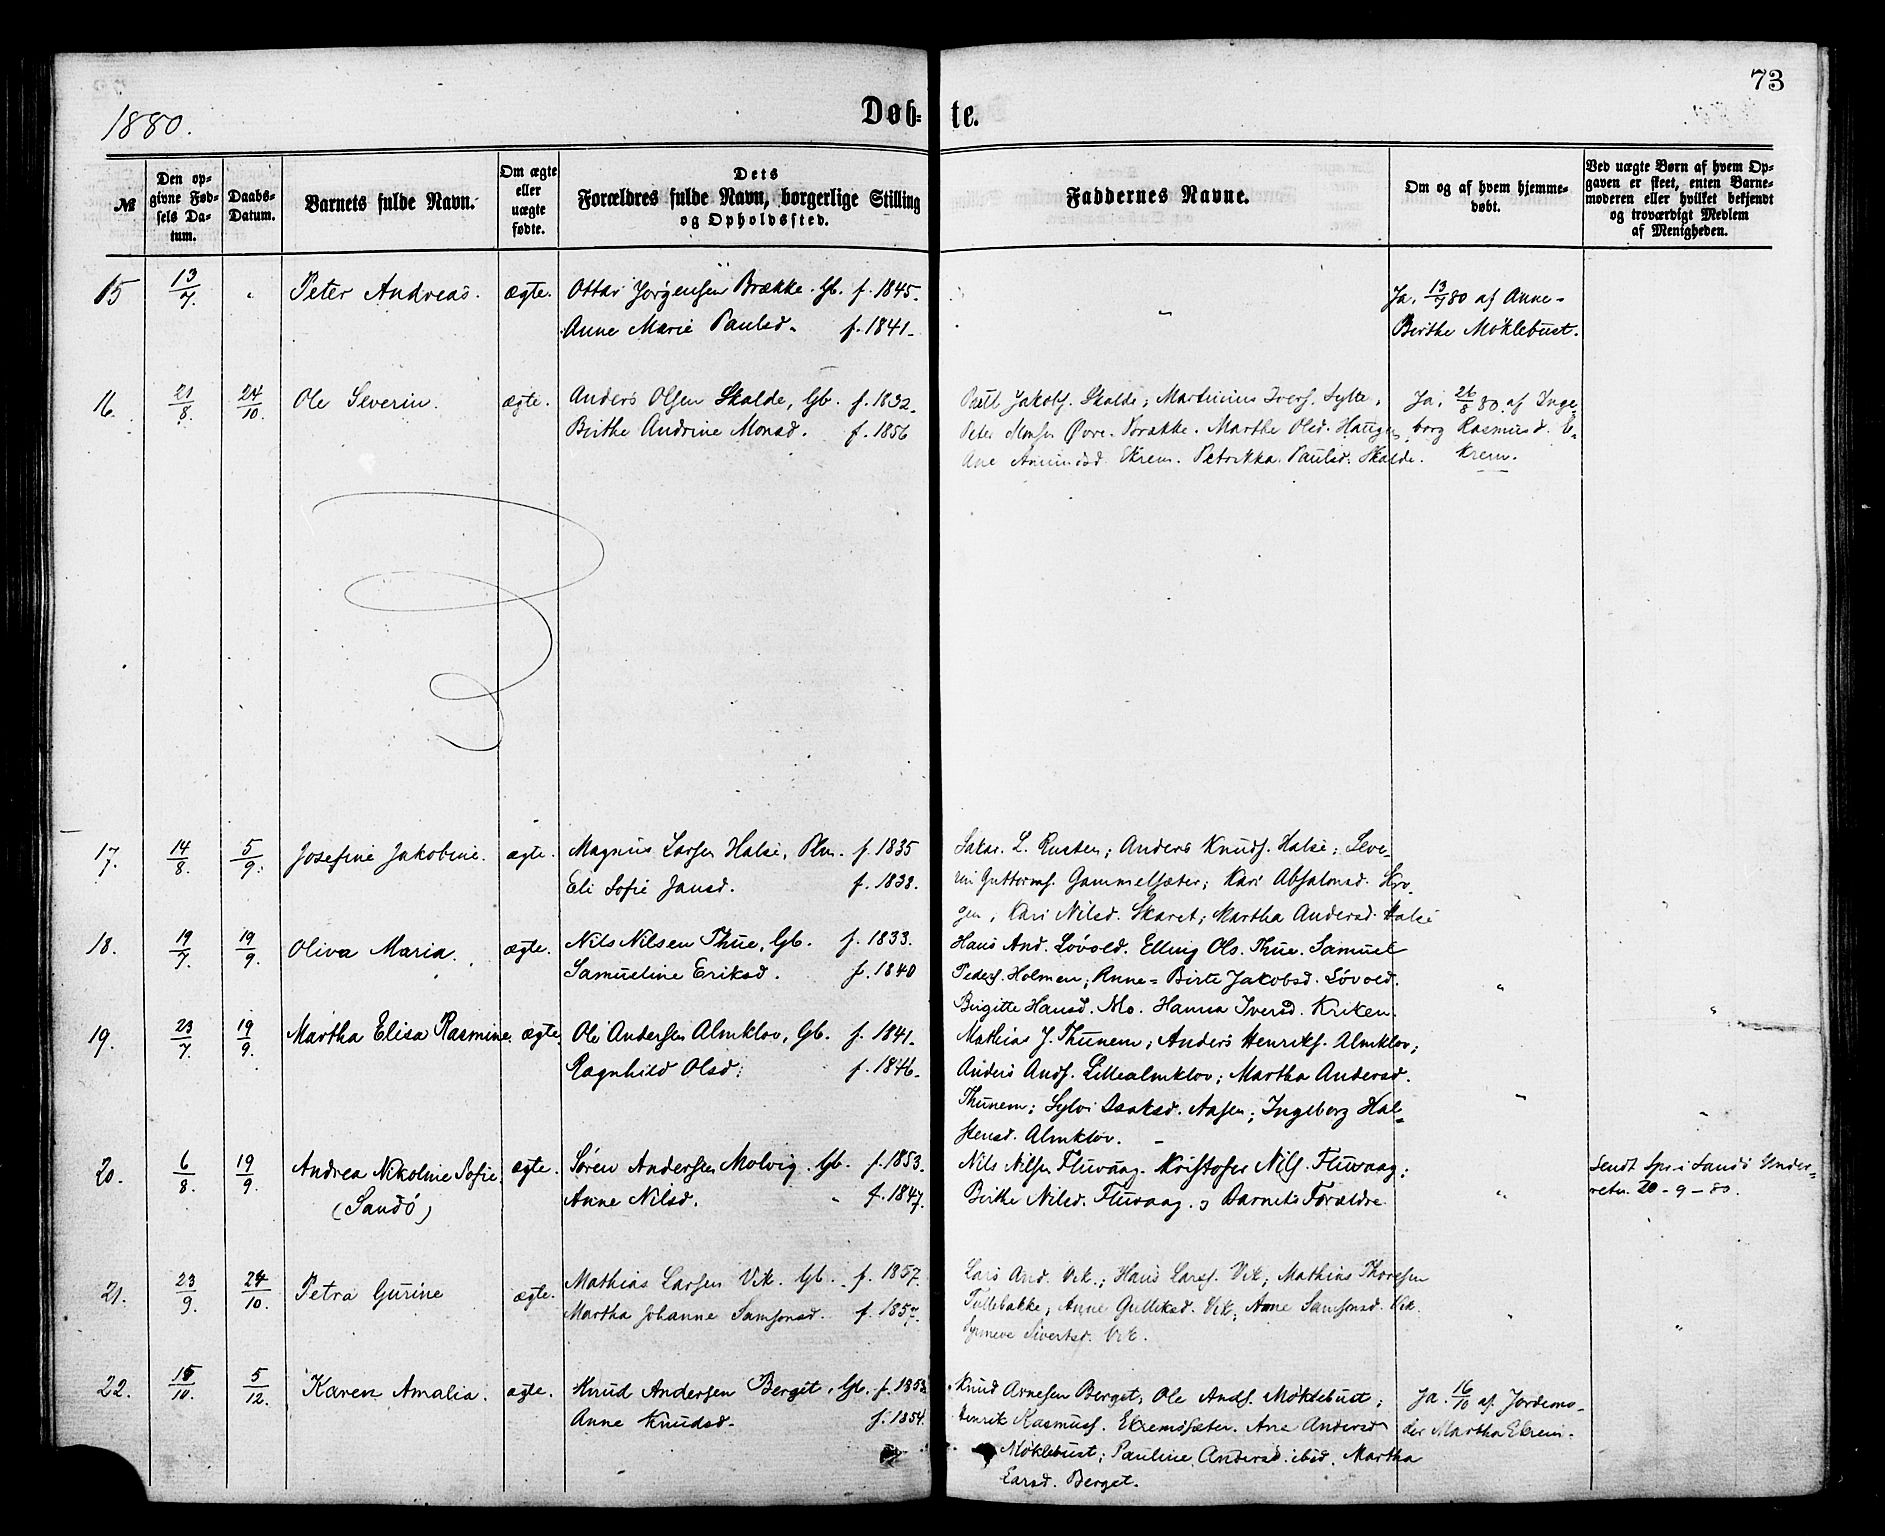 73
1880.
Døb= te.
№
Den op-
givne Fød-
sels Da-
tum.
Daabs-
Datum.
Barnets fulde Navn.
Om ægte
eller
uægte
fødte.
Dets
Forældres fulde Navn, borgerlige Stilling
og Opholdssted.
Faddernes Navne.
Om og af hvem hjemme-
døbt.
Ved uægte Børn af hvem Op-
gaven er skeet, enten Barne-
moderen eller hvilket bekjendt
og troværdigt Medlem
af Menigheden.
15 13/7. " Peter Andreas. ægte. Ottar Jørgensen Brække. Gb. f. 1845. " Ja. 13/7 80 af Anne-
Anne Marie Paulsd. f. 1841. Birthe Möklebust.
16. 21/8. 24/10. Ole Severin. ægte. Anders Olsen Skalde, Gb. f. 1832. Jakobs. Skalde; Martinius Ivers. Sylte; Ja, 26/8 80. af Inge-
Birthe Andrine Monsd. f. 1856 Peter Monsen Øvre-Brække. Marthe Olsd. Haugen, borg Rasmusd. E-
Ane Amundsd. Ekrem. Petrikka Paulsd. Skalde. krem.
17. 14/8. 5/9. Josefine Jakobine. ægte. Magnus Larsen Halse, Plm. f. 1835 Sakar. L. Rusten; Anders Knuds. Halse; Seve-
Eli Sofie Jansd. f. 1838. rin Guttorms. Gammelsæter; Kari Absalonsd. Kro-
gen, Kari Nilsd. Skaret; Martha Andersd. Halse
18. 19/7. 19/9. Oliva Maria. ægte. Nils Nilsen Thue, Gb. f. 1833. Hans And. Løvold. Elling Ols. Thue. Samuel
Samueline Eriksd. f. 1840 Peders. Holmen; Anne-Birte Jakobsd. Løvold.
Birgitte Hansd. Mo. Hanna Iversd. Kriken. " "
19. 23/7. 19/9. Martha Elisa Rasmine. ægte. Ole Andersen Almklov, Gb. f. 1841. Mathias J. Thunem; Anders Henriks. Almklov;
Ragnhild Olsd. f. 1846. Anders Ands. Lillealmklov; Martha Andersd.
Thunem; Sylvi Isaksd. Aasen; Ingeborg Hal-
stensd. Almklov. " "
20. 6/8. 19/9. Andrea Nikoline Sofie. ægte. Søren Andersen Molvig. Gb. f. 1853. Nils Nilsen Fluvaag. Kristofer Nils. Fluvaag; Sendt Spr. i Sandö Under-
(Sandö) Anne Nilsd. " f. 1847. Birthe Nilsd. Fluvaag. og Barnets Forældre. " retn. 20-9-80.
21. 23/9. 24/10. Petra Gurine ægte. Mathias Larsen Vik. Gb. f. 1857. Lars And. Vik.; Hans Lars. Vik; Mathias Thoresen
Martha Johanne Samsonsd. f. 1857. Tullebakke; Anne Gulliksd. Vik; Anne Samsonsd. Vik.
Synneve Sivertsd. Vik. " "
22. 15/10. 5/12. Karen Amalia. ægte. Knud Andersen Berget, Gb. f. 1853 Knud Arnesen Berget; Ole Ands. Möklebust; Ja. 16/10 af Jordemo-
Anne Knudsd. f. 1854. Henrik Rasmuss. Ekremsæter. Ane Andersd der Martha Ekrem.
Möklebust; Pauline Andersd. ibid. Martha
Larsd. Berget.